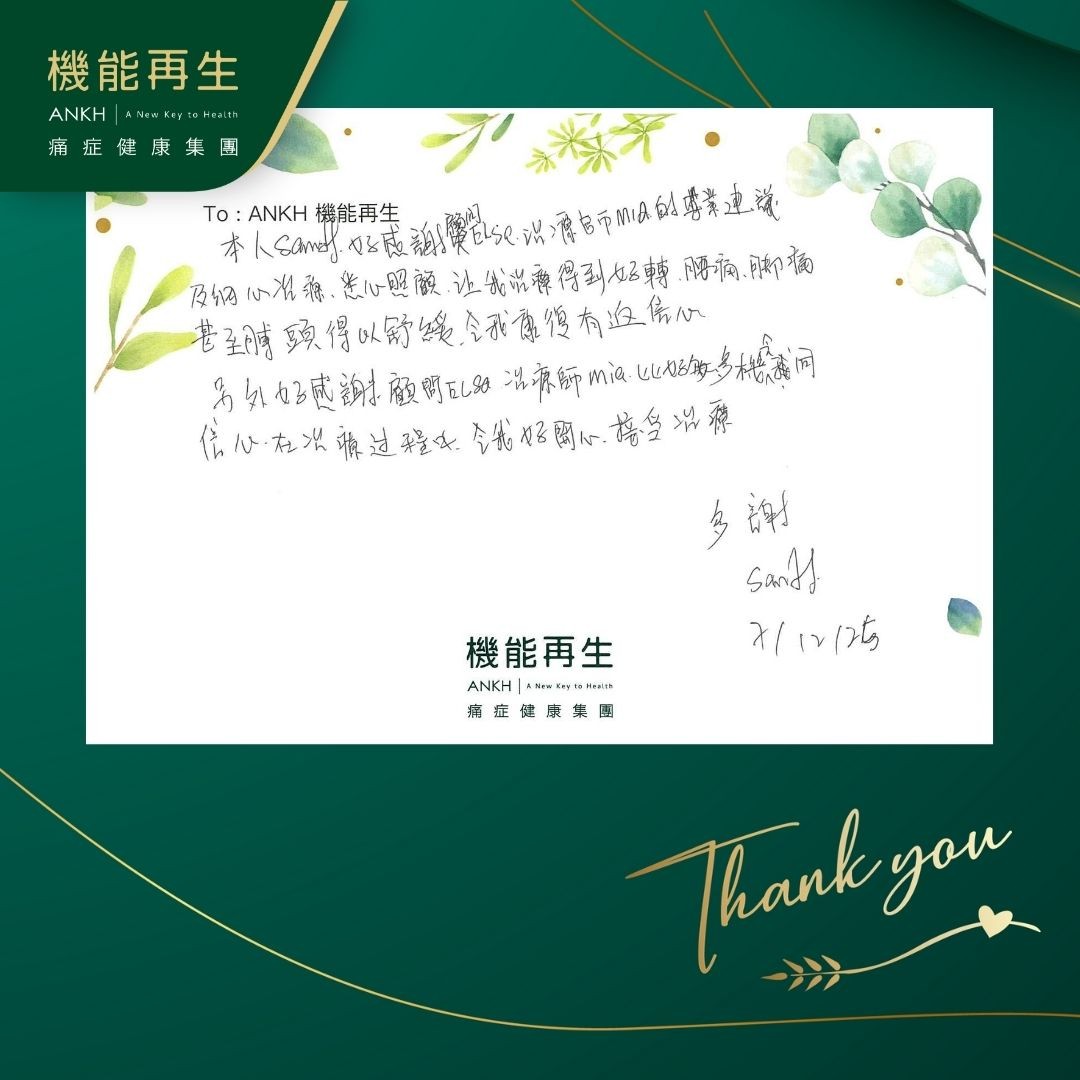 機能再生
ANKH | A New Key to Health
痛症健康集團
To : ANKH 機能再生
本人 好感謝顧問ELSE.治療師mia的專業建議
及細心治療、悉心照顧、让我治療得到好轉、腰痛、脚痛
甚至膊頭得以舒緩、令我康復有返信心
另外好感謝顧問ELSA 治療師mia 好多 我同
信心.在治療过程 令我好開心.接受治療
多謝
機能再生
ANKH | A New Key to Health
痛症健康集團
Thank you